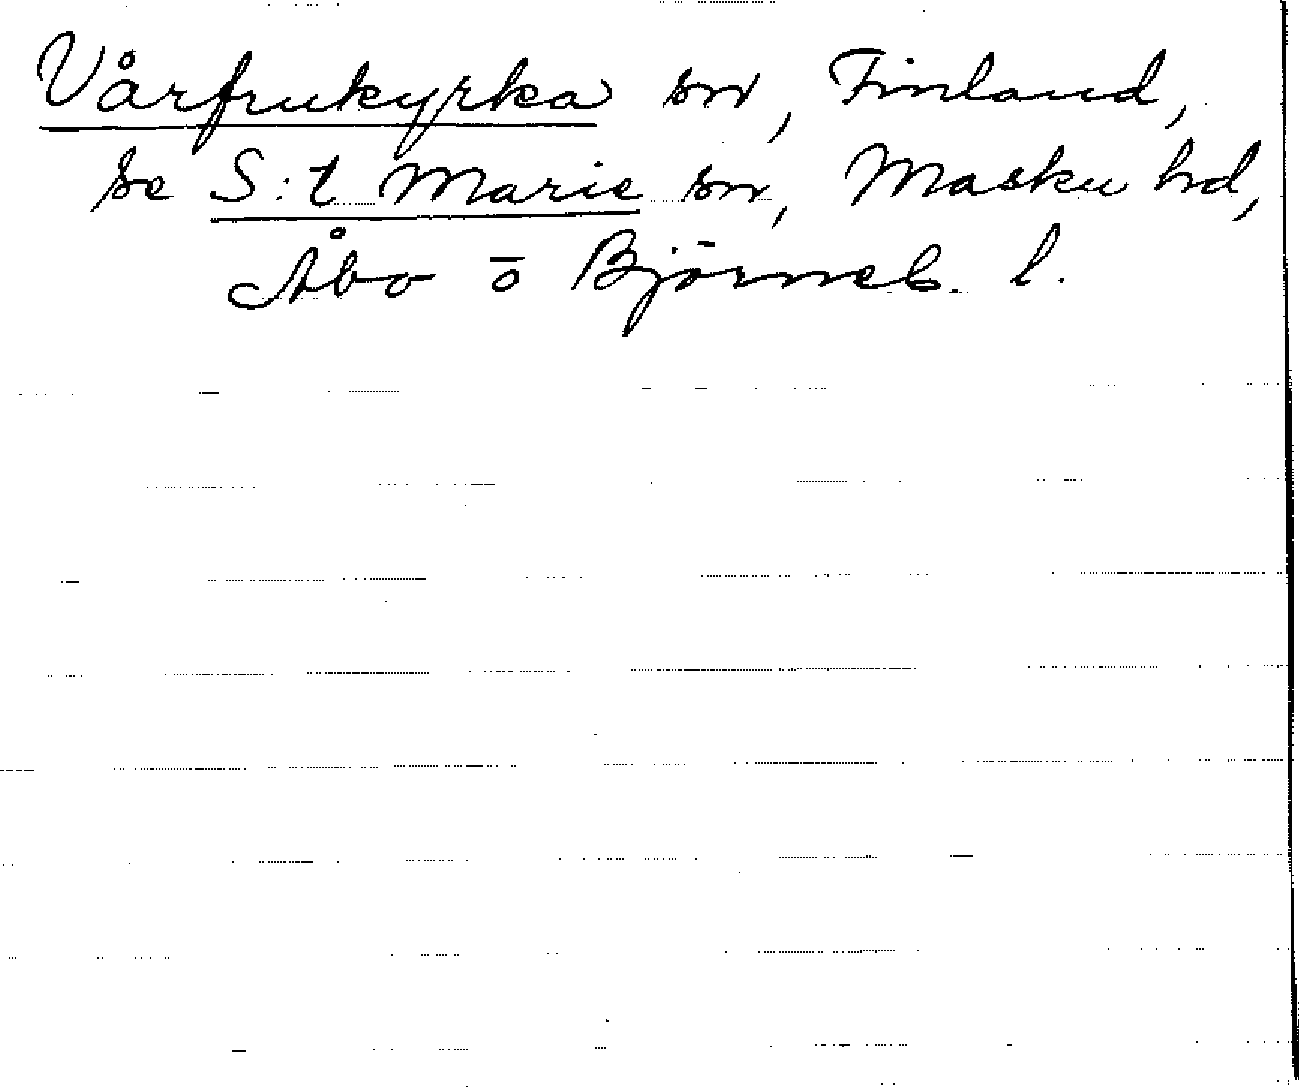 Vårfrukyrka sn, Finland,
se S:t Marie sn, Masku hd,
Åbo o Björneb. l.